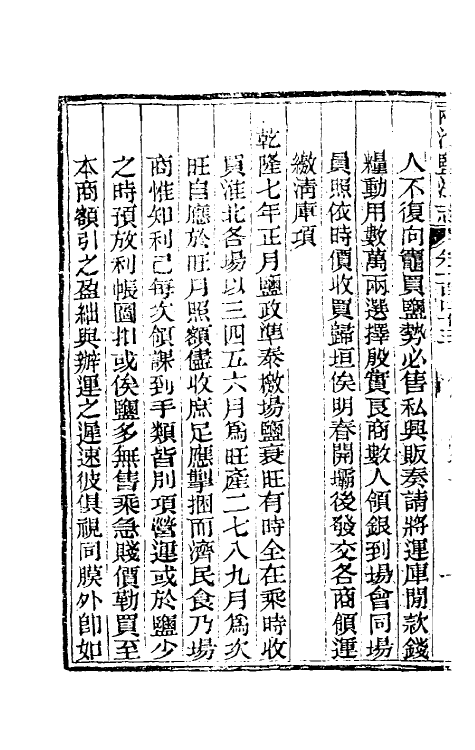 人不復向竈買鹽勢必售私興販奏請將運庫閒款錢
糧動用數萬兩選擇殷實良商數人領銀到場會同場
員照依時價收買歸垣俟明春開壩後發交各商領運
繳淸庫項
乾隆七年正月鹽政準泰檄場鹽衰旺有時全在乘時收
買淮北各場以三四五六月爲旺產二七八九月爲次
旺自應於旺月照額儘收庶足應掣捆而濟民食乃場
商惟知利己每次領課到手類皆別項營運或於鹽少
之時預放利帳圖扣或俟鹽多無售乘急賤價勒買至
本商額引之盈絀與辦運之遲速彼俱視同膜外卽如